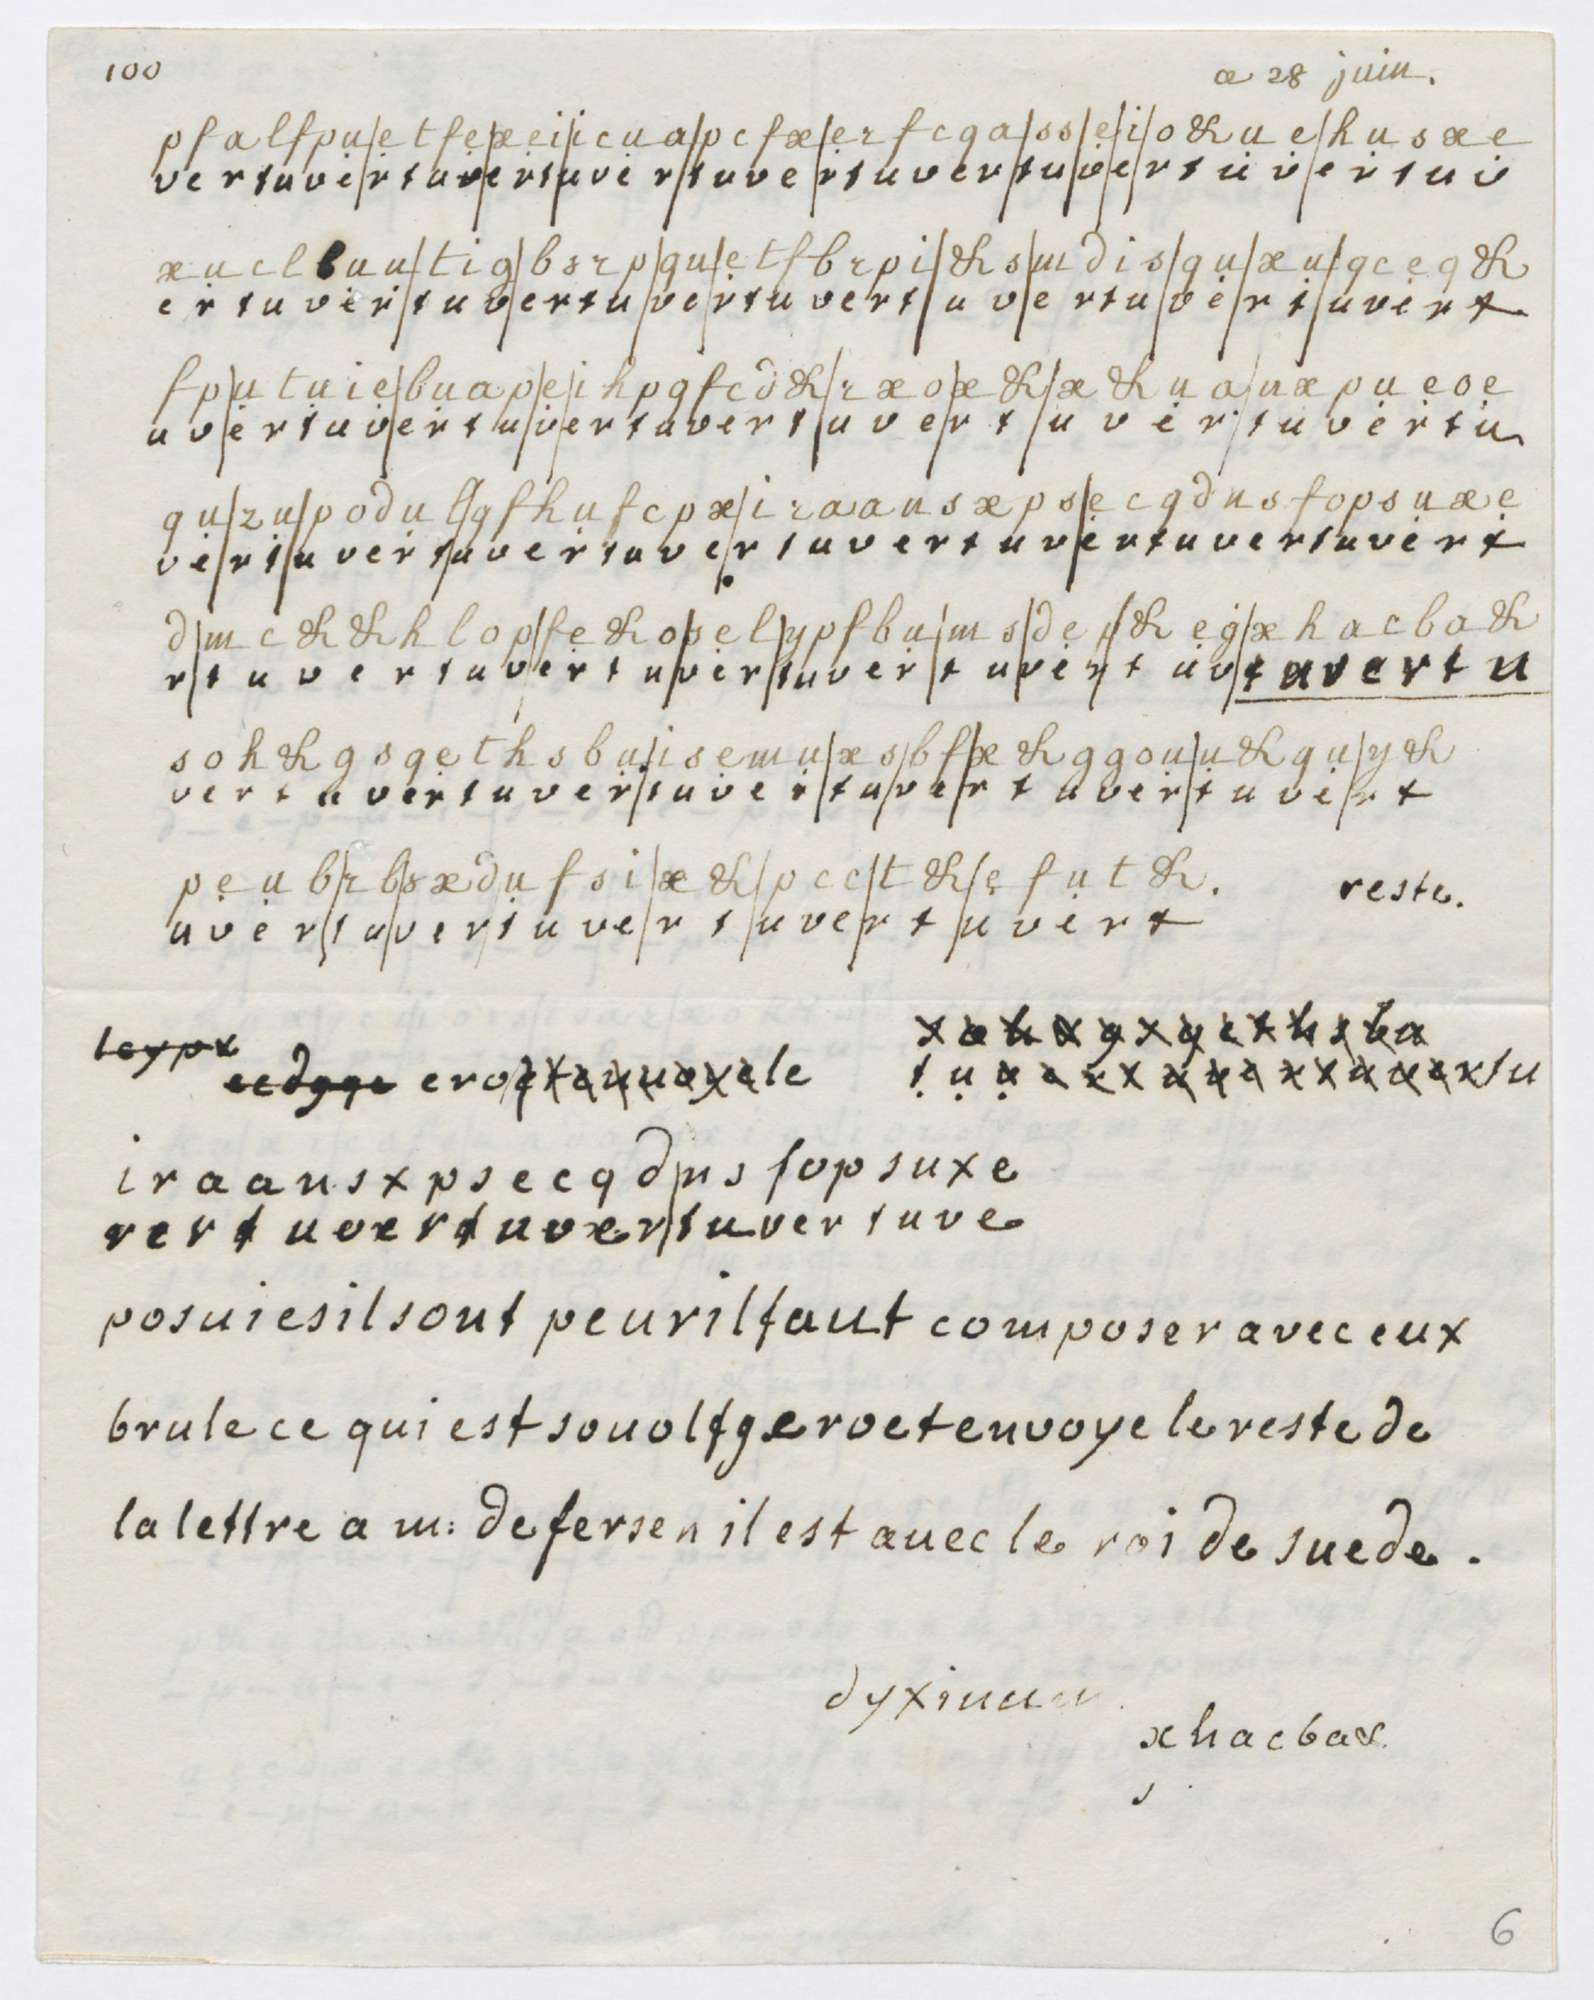 100
a 28 juin.
pfalfpu/etfe/xei/icua/pcfx/erfcqa/ss/e/io&ue/husxe
vertuve/rtuv/ert/uver/tuve/rtuver/tu/v/ertuv/ertuv
xucl buu/tig/bsrp/qu/etfbrpi/&s/mdis/qu/xu/qceq&
ertuver/tuv/ertu/ve/rtuvert/uv/ertu/ve/rt/uvert
fp/utuie/buap/e/ihpqfcd&/rxo/x&/x&ua/uxpueoe
uv/ertuv/ertu/v/ertuvert/uve/rt/uver/tuvertu
qu/zu/podul/qfhufcpx/iraausxps/ecqdusfopsuxe
ve/rt/uvert/uvertuve/rtuvertuv/ertuvertuvert
d/mc&&hlop/fe&o/sel/ypfbu/ms/dep/& eg/xhacba&
r/tuvertuv/ertu/ver/tuver/tu/ver/t uv/tuvertu
soh&gsqethsbu/isemu/xs/bf/x&ggou/u&qu/y&
vertuvertuver/tuver/tu/ve/rtuver/tuve/rt
peub/rb/sxdu/fsi/x&/pcc/t&/efut&.
uver/tu/vert/uve/rt/uve/rt/uvert
reste.
ero le
tu
iraausxpsecqd/usfopsuxe
rertuvertuver/tuvertuve
posuiesilsont peurilfaut composeravec eux
brule ce qui est souolfgeroetenvoye le reste de
la lettre a m: de fersen il est avec le roi de suede.
xhacbax
s
6